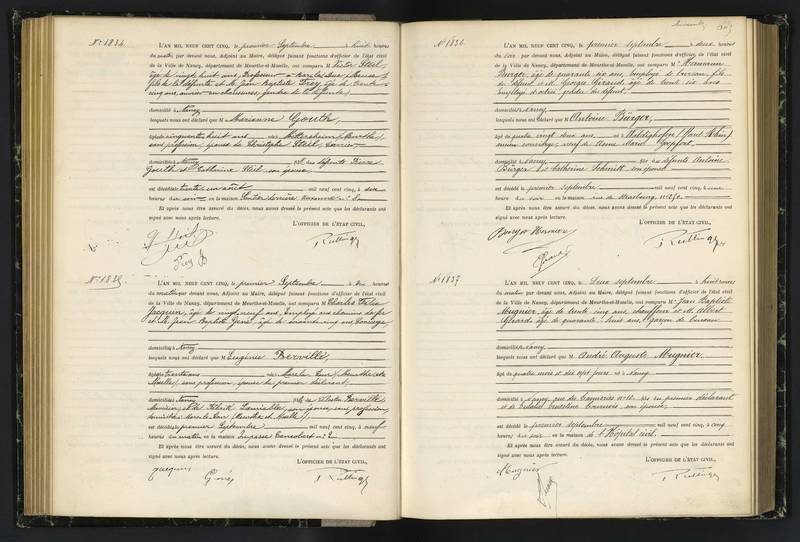 N° 1834
L'AN MIL NEUF CENT CINQ, le premier Septembre à huit heures
du matin par devant nous, Adjoint au Maire, délégué faisant fonctions d'officier de l'état civil
de la Ville de Nancy, département de Meurthe-et-Moselle, ont comparu M Victor Steil,
âgé de vingt huit ans, Professeur à Bar le Duc (Meuse)
fils de la défunte et M. Jean Baptiste Frey âgé de trente
cinq ans, ouvrier en chaussures, gendre de la défunte,
domicilié à Nancy
lesquels nous ont déclaré que M Marianne Gouth,
âgée cinquante huit ans née à
sans profession, épouse de Christophe Steil, carrier
domiciliée à Nancy fille des défunts Pierre
Gouth et Catherine Steil son épouse
est décédée trente un août mil neuf cent cinq, à dix
heures du soir en la maison Sentier derrière
Et après nous être assuré du décès, nous avons dressé le présent acte que les déclarants ont
signé avec nous après lecture.
L'OFFICIER DE L'ÉTAT CIVIL,
Frey
N° 1835
L'AN MIL NEUF CENT CINQ, le premier Septembre à dix heures
du matin par devant nous, Adjoint au Maire, délégué faisant fonctions d'officier de l'état civil
de la Ville de Nancy, département de Meurthe-et-Moselle, ont comparu M Charles
Jacquin, âgé de vingt neuf ans, Employé aux chemins de fer
et M. Jean Baptiste âgé de soixante cinq ans Concierge
domicilié à Nancy
lesquels nous ont déclaré que M Eugénie Berville,
âgée trente ans née à Mars la Tour (Meurthe et
Moselle), sans profession, épouse du premier déclarant
domiciliée à Nancy fille de Berville
sans profession
domiciliés à Mars la Tour (Meurthe et Moselle)
est décédée premier Septembre mil neuf cent cinq, à neuf
heures du matin en la maison Impasse Canrobert n°
Et après nous être assuré du décès, nous avons dressé le présent acte que les déclarants ont
signé avec nous après lecture.
L'OFFICIER DE L'ÉTAT CIVIL,
Jacquin
N° 1836
L'AN MIL NEUF CENT CINQ, le premier septembre à deux heures
du soir par devant nous, Adjoint au Maire, délégué faisant fonctions d'officier de l'état civil
de la Ville de Nancy, département de Meurthe-et-Moselle, ont comparu M Hermann
Bürger, âgé de quarante six ans, employé de bureau, fils
du défunt et M. Georges Gérard âgé de trente six ans
employé d'octroi, gendre du défunt
domiciliés à Nancy
lesquels nous ont déclaré que M Antoine Bürger,
âgé de quatre vingt deux ans, né à Waldighofen (Haut Rhin)
ancien concierge, veuf de Anne Marie
domicilié à Nancy fils des défunts Antoine
Bürger et Catherine Schmitt son épouse
est décédé le premier septembre mil neuf cent cinq, à une
heure du soir en la maison rue de Strasbourg, n°
Et après nous être assuré du décès, nous avons dressé le présent acte que les déclarants ont
signé avec nous après lecture.
L'OFFICIER DE L'ÉTAT CIVIL,
Burger Hermann
N° 1837
L'AN MIL NEUF CENT CINQ, le Deux septembre à huit heures
du matin par devant nous, Adjoint au Maire, délégué faisant fonctions d'officier de l'état civil
de la Ville de Nancy, département de Meurthe-et-Moselle, ont comparu M. Jean Baptiste
Mugnier, âgé de trente cinq ans, chauffeur et M. Albert
Gérard âgé de quarante huit ans, garçon de bureau
domiciliés à Nancy
lesquels nous ont déclaré que M André Auguste Mugnier,
âgé de quatre mois et dix sept jours né à Nancy
domicilié à Nancy, rue des Tanneries n° fils du premier déclarant
et de son épouse
est décédé le premier septembre mil neuf cent cinq, à cinq
heures du soir en la maison de l'Hôpital civil
Et après nous être assuré du décès, nous avons dressé le présent acte que les déclarants ont
signé avec nous après lecture.
L'OFFICIER DE L'ÉTAT CIVIL,
Mugnier